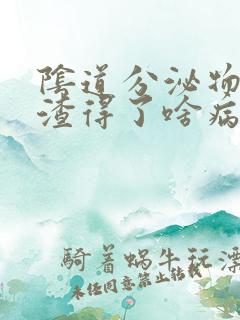 陰道分泌物
渣得了啥病
騎着蝸牛玩漂
未经同意禁止转载